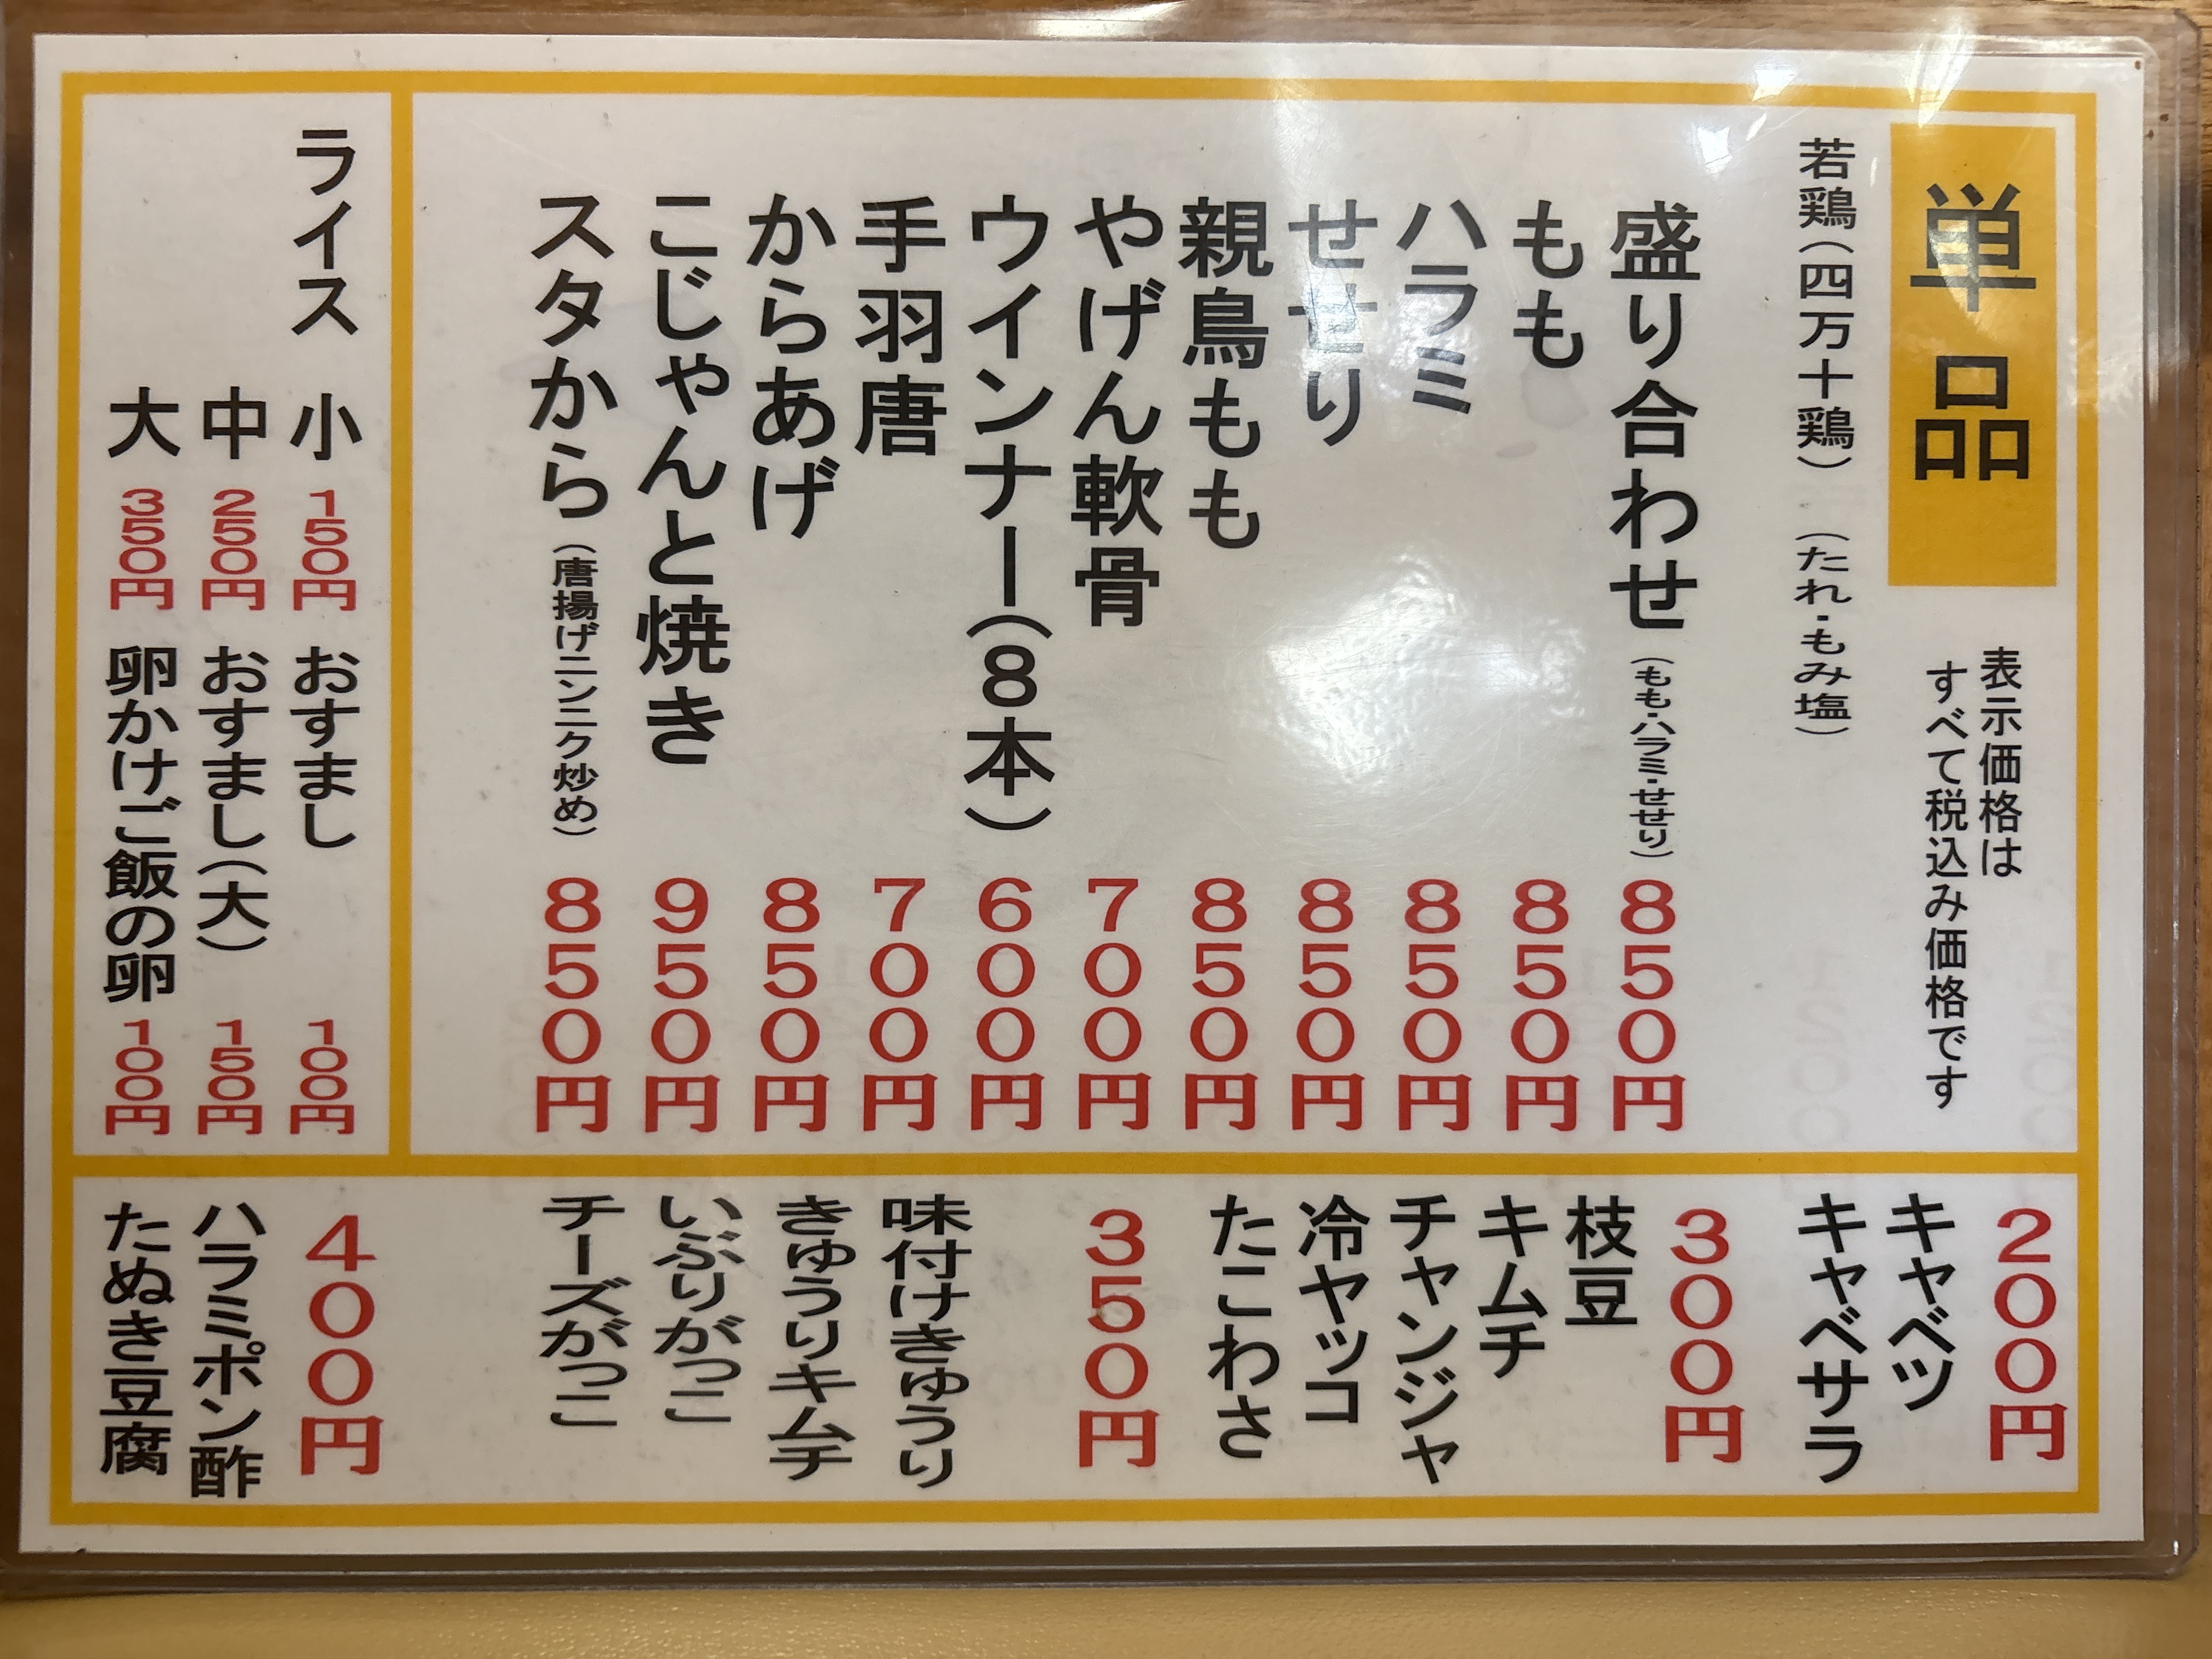 単品
表示価格は
すべて税込み価格です
若鶏（四万十鶏）（たれ・もみ塩）
盛り合わせ（もも・ハラミ・せせり）850円
もも 850円
ハラミ 850円
せせり 850円
親鳥もも 850円
やげん軟骨 700円
ウインナー（8本）600円
手羽唐 700円
からあげ 850円
こじゃんと焼き 950円
スタから（唐揚げニンニク炒め）850円
ライス 小 150円 おすまし 100円
中 250円 おすまし（大）150円
大 350円 卵かけご飯の卵 100円
200円
キャベツ
キャベサラ
300円
枝豆
キムチ
チャンジャ
冷ヤッコ
たこわさ
350円
味付けきゅうり
きゅうりキムチ
いぶりがっこ
チーズがっこ
400円
ハラミポン酢
たぬき豆腐